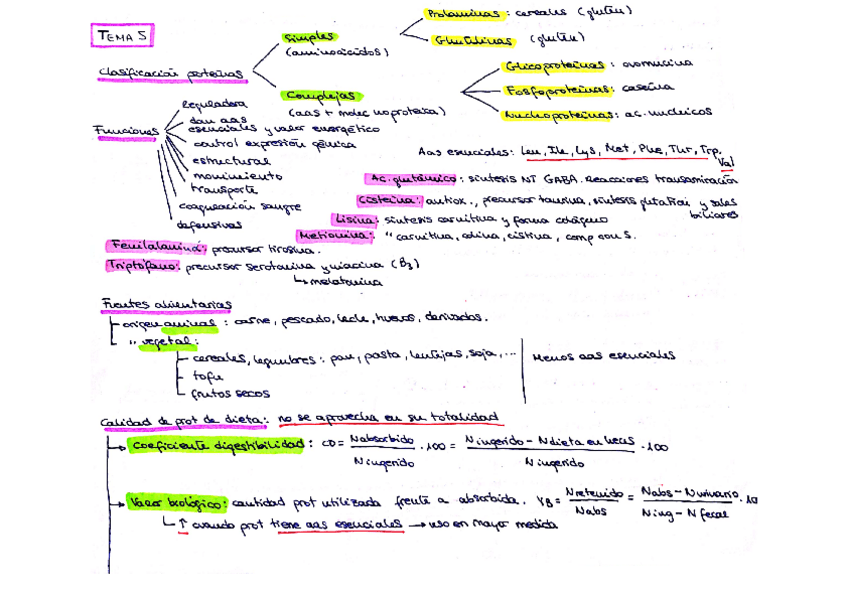 TEMA 5
Clasificación proteínas
Simples
(aminoácidos)
Prolaminas: cereales (gluten)
Glutelinas (gluten)
Complejas
(aas + molec no proteica)
Glicoproteínas: ovomucina
Fosfoproteínas: caseína
Nucleoproteínas: ac. nucleicos
Funciones
reguladora
dan aas
esenciales y valor energético
control expresión génica
estructural
movimiento
transporte
coagulación sangre
defensivas
Aas esenciales: Leu, Ile, Lys, Met, Phe, Thr, Trp,
Val
Ac. glutámico: síntesis NT GABA. Reacciones transaminación
Cisteína: antiox., precursor taurina, síntesis glutation y sales
biliares
Lisina: síntesis carnitina y forma colágeno
Metionina: " carnitina, colina, cistina, comp con S.
Fenilalanina: precursor tirosina.
Triptófano: precursor serotonina y niacina (B3)
↳ melatonina
Fuentes alimentarias
origen animal: carne, pescado, leche, huevos, derivados.
" vegetal:
cereales, legumbres: pan, pasta, lentejas, soja, ...
tofu
frutos secos
Menos aas esenciales
Calidad de prot de dieta: no se aprovecha en su totalidad
→ Coeficiente digestibilidad: CD = Nabsorbido / Ningerido · 100 = Ningerido - Ndieta en heces / Ningerido · 100
→ Valor biológico: cantidad prot utilizada frente a absorbida. VB = Nretenido / Nabs = Nabs - Nurinario / Ning - Nfecal · 10
↳ ↑ cuando prot tiene aas esenciales → uso en mayor medida